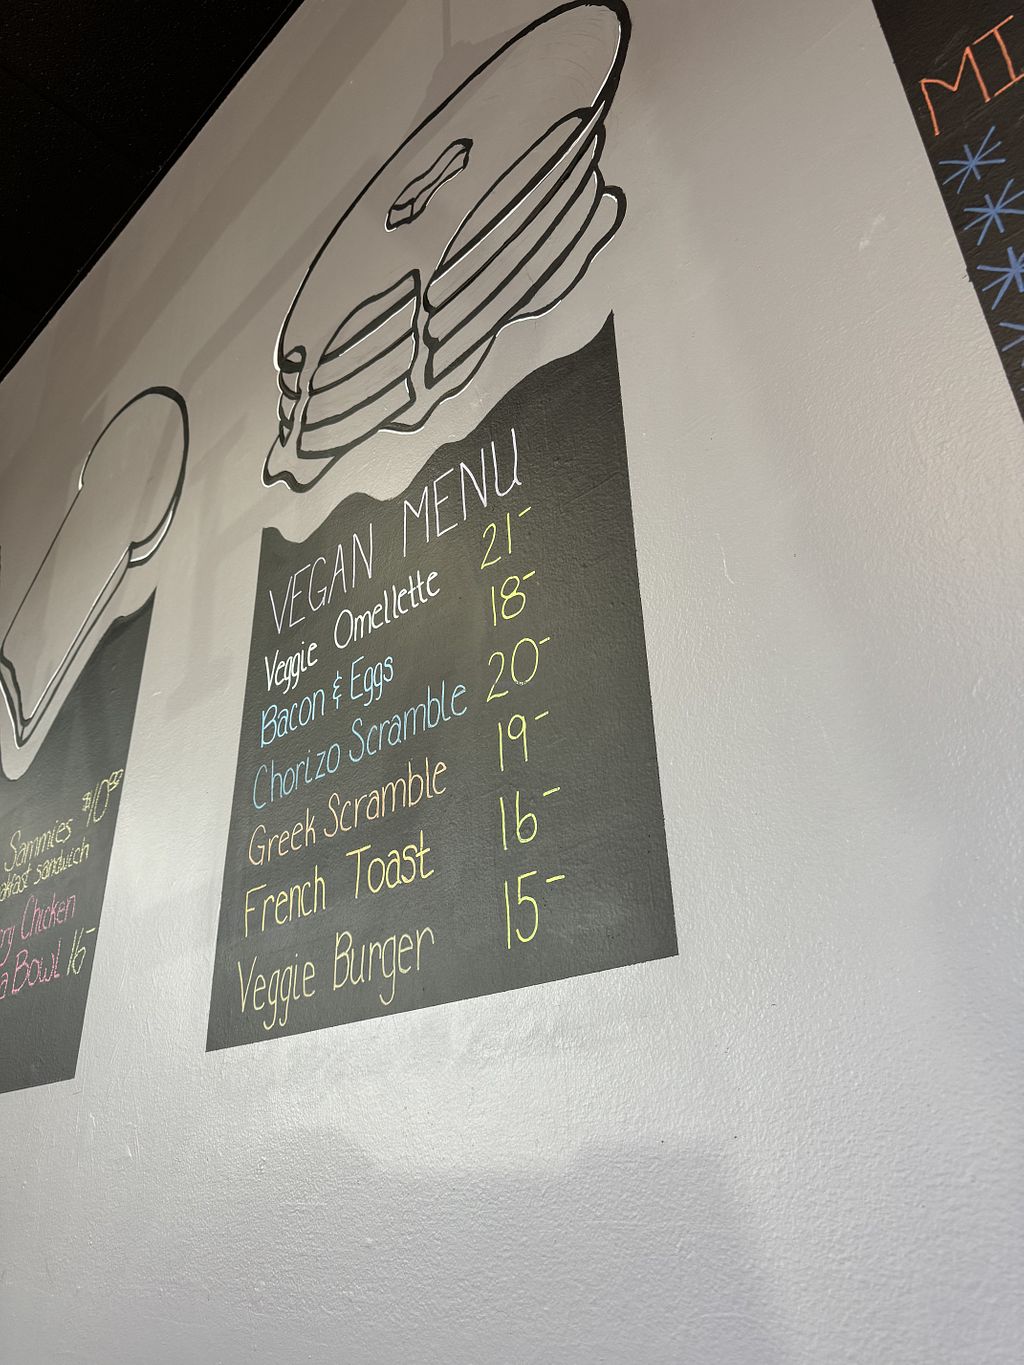 VEGAN MENU
Veggie Omellette 21-
Bacon & Eggs 18-
Chorizo Scramble 20-
Greek Scramble 19-
French Toast 16-
Veggie Burger 15-
Sammies $10.00
sandwich
Chicken
Bowl 16-
MI